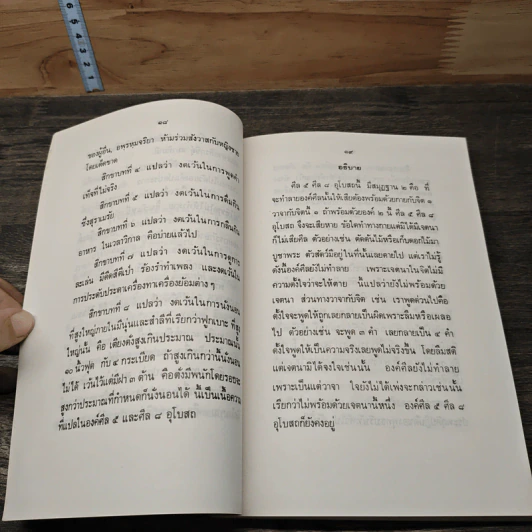 ๑๘
ของผู้อื่น, อพรหมจริยา ห้ามร่วมสังวาสกับหญิงชาย
โดยเด็ดขาด
สิกขาบทที่ ๔ แปลว่า งดเว้นในการพูดคำ
เท็จที่ไม่จริง
สิกขาบทที่ ๕ แปลว่า งดเว้นในการดื่มกิน
ซึ่งสุราเมรัย
สิกขาบทที่ ๖ แปลว่า งดเว้นในการกลืนกิน
อาหาร ในเวลาวิกาล คือบ่ายแล้วไป
สิกขาบทที่ ๗ แปลว่า งดเว้นในการดูการ
ละเล่น มีดีดสีตีเป่า ร้องรำทำเพลง และงดเว้นใน
การประดับประดาเครื่องทาเครื่องย้อมต่าง ๆ
สิกขาบทที่ ๘ แปลว่า งดเว้นในการนั่งนอน
ที่สูงใหญ่ภายในมีนุ่นและสำลีที่เรียกว่าฟูกเบาะ ที่สูง
ใหญ่นั้น คือ เตียงตั่งสูงเกินประมาณ ประมาณนั้น
๑๐ นิ้วฟุต กับ ๔ กระเบียด ถ้าสูงเกินกว่านี้นั่งนอน
ไม่ได้ เว้นไว้แต่มีฝา ๓ ด้าน คือตั่งมีพนักโดยรอบจะ
สูงกว่าประมาณที่กำหนดก็นั่งนอนได้ นี้เป็นเนื้อความ
ที่แปลในองค์ศีล ๕ และศีล ๘ อุโบสถ
๑๙
อธิบาย
ศีล ๕ ศีล ๘ อุโบสถนี้ มีสมุฏฐาน ๒ คือ ที่
จะทำลายองค์ศีลนั้นให้เสียต้องพร้อมด้วยกายกับจิต ๑
วาจากับจิตนี้ ๑ ถ้าพร้อมด้วยองค์ ๒ นี้ ศีล ๕ ศีล ๘
อุโบสถ จึงจะเสียหาย ข้อใดทำทางกายแต่มิได้มีเจตนา
ก็ไม่เสียศีล ตัวอย่างเช่น ตัดต้นไม้หรือเก็บดอกไม้มา
บูชาพระ ตัวสัตว์มีอยู่ในที่นั้นเลยตายไป แต่เราไม่รู้
ดังนี้องค์ศีลยังไม่ทำลาย เพราะเจตนาในจิตไม่มี
ความตั้งใจว่าจะให้ตาย นี้แปลว่ายังไม่พร้อมด้วย
เจตนา ส่วนทางวาจากับจิต เช่น เราพูดด้วยปาก
ตั้งใจจะพูดให้ถูกเลยกลายเป็นผิดเพราะลืมหรือเผลอ
ไป ตัวอย่างเช่น จะพูด ๓ คำ เลยกลายเป็น ๔ คำ
ตั้งใจพูดให้เป็นความจริงเลยพูดไม่จริงขึ้น โดยลืมสติ
แต่เจตนามิได้จงใจเช่นนั้น องค์ศีลยังไม่ทำลาย
เพราะเป็นแต่วาจา ใจยังไม่ได้เพ่งจะกล่าวเช่นนั้น
เรียกว่าไม่พร้อมด้วยเจตนานี้หนึ่ง องค์ศีล ๕ ศีล ๘
อุโบสถก็ยังคงอยู่
5
4
3
2
1